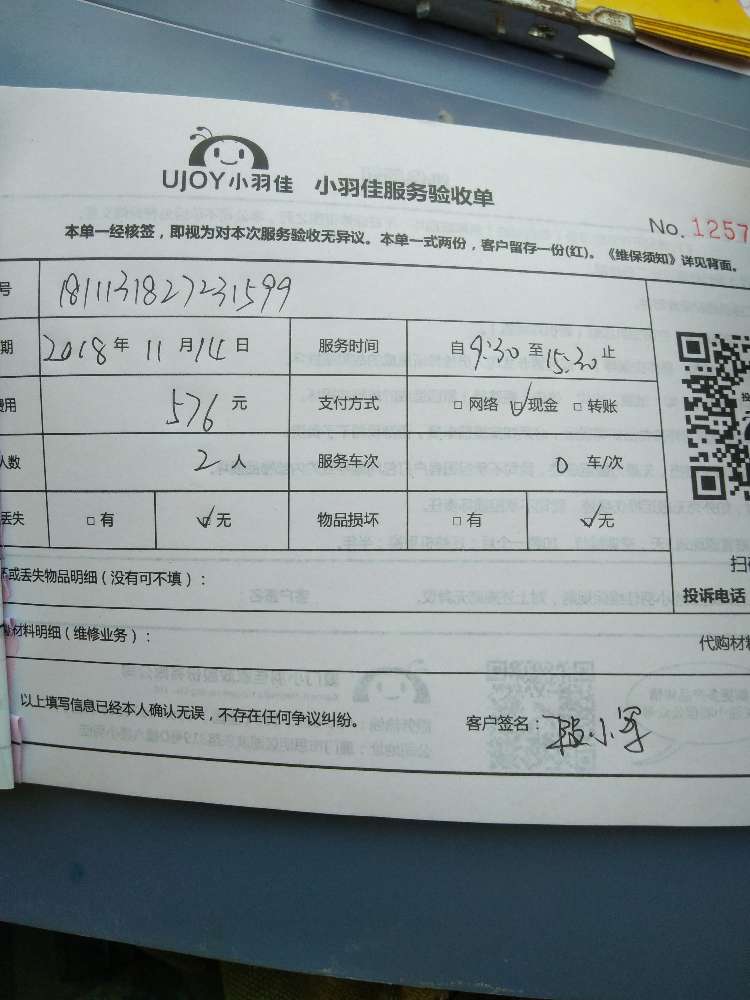 UJOY小羽佳 小羽佳服务验收单
No. 1257
本单一经核签，即视为对本次服务验收无异议。本单一式两份，客户留存一份(红)。《维保须知》详见背面。
号 1811131827231599
期 2018年 11月14日 服务时间 自9:30至15:30止
费用 576元 支付方式 □网络 ☑现金 □转账
人数 2人 服务车次 0 车/次
丢失 □有 ☑无 物品损坏 □有 ☑无
坏或丢失物品明细（没有可不填）： 扫
投诉电话
材料明细（维修业务）： 代购材料
以上填写信息已经本人确认无误，不存在任何争议纠纷。 客户签名：小军